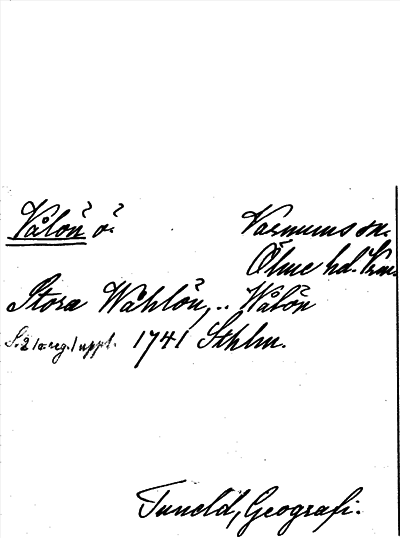 Vålön ö.
Varnums sn.
Ölme hd. Vrm.
Stora Wåhlön, .. Wålön
S. 2 /o. reg./ uppl. 1741 Sthlm.
Tuneld, Geografi.